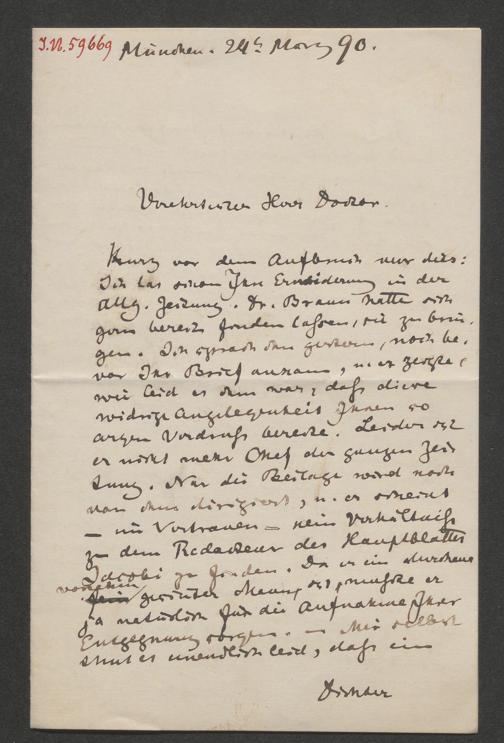 I.N. 59669
München. 24t März 90.
Verehrtester Herr Doctor.
Kurz vor dem Aufbruch nur dies:
Ich las schon Ihre Erwiderung in der
Allg. Zeitung. Dr. Braun hatte sich
gern bereit finden lassen, sie zu brin-
gen. Ich sprach ihn gestern, noch be-
vor Ihr Brief ankam, u. er zeigte,
wie leid es ihm war, daß diese
widrige Angelegenheit Ihnen so
argen Verdruß bereite. Leider ist
er nicht mehr Chef der ganzen Zei-
tung. Nur die Beilage wird noch
von ihm dirigiert, u. er scheint
– im Vertrauen – kein Verhältniß
zu dem Redacteur des Hauptblattes
Jacobi zu finden. Da er ein durchaus
vornehm gesinnter Mann ist, mußte er
ja natürlich für die Aufnahme Ihrer
Entgegnung sorgen. – Mir selbst
thut es unendlich leid, daß ein
Dichter